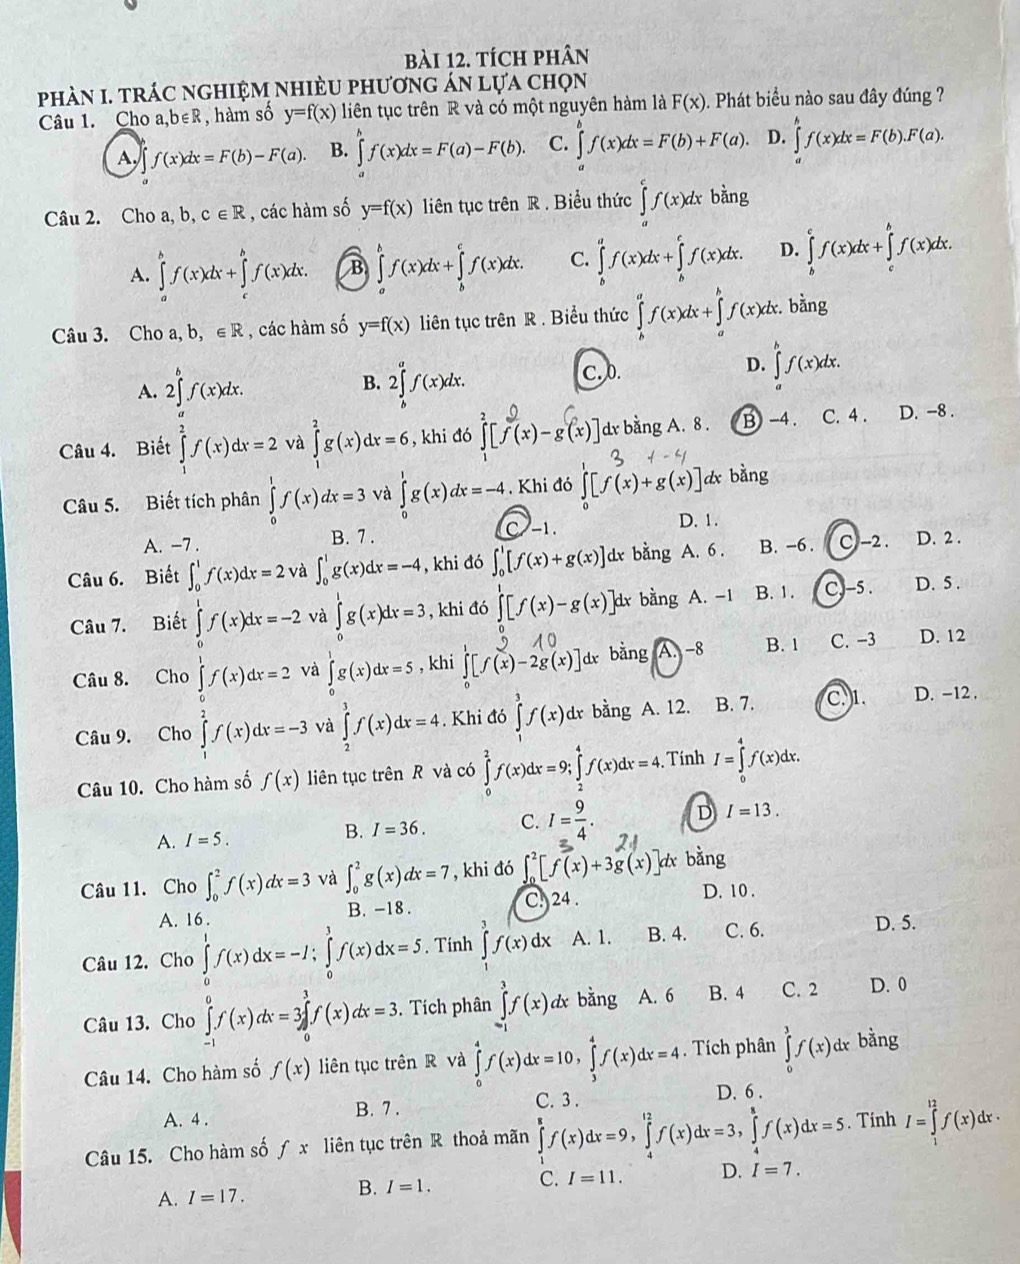 BÀI 12. TÍCH PHÂN
PHẦN I. TRẮC NGHIỆM NHIỀU PHƯƠNG ÁN LỰA CHỌN
Câu 1. Cho a,b∈ℝ, hàm số y=f(x) liên tục trên ℝ và có một nguyên hàm là F(x). Phát biểu nào sau đây đúng ?
A. ∫_a^b f(x)dx = F(b)−F(a). B. ∫_a^b f(x)dx = F(a)−F(b). C. ∫_a^b f(x)dx = F(b)+F(a). D. ∫_a^b f(x)dx = F(b).F(a).
Câu 2. Cho a, b, c ∈ ℝ, các hàm số y=f(x) liên tục trên ℝ. Biểu thức ∫_a^c f(x)dx bằng
A. ∫_a^b f(x)dx + ∫_c^b f(x)dx. B ∫_a^b f(x)dx + ∫_b^c f(x)dx. C. ∫_b^a f(x)dx + ∫_b^c f(x)dx. D. ∫_b^c f(x)dx + ∫_c^b f(x)dx.
Câu 3. Cho a, b, ∈ ℝ, các hàm số y=f(x) liên tục trên ℝ. Biểu thức ∫_b^a f(x)dx + ∫_a^b f(x)dx. bằng
A. 2∫_a^b f(x)dx. B. 2∫_b^a f(x)dx. C. 0. D. ∫_a^b f(x)dx.
Câu 4. Biết ∫_1^2 f(x)dx = 2 và ∫_1^2 g(x)dx = 6, khi đó ∫_1^2 [f(x)−g(x)]dx bằng A. 8. B −4. C. 4. D. −8.
3 + -4
Câu 5. Biết tích phân ∫_0^1 f(x)dx = 3 và ∫_0^1 g(x)dx = −4. Khi đó ∫_0^1 [f(x)+g(x)]dx bằng
A. −7. B. 7. C −1. D. 1.
Câu 6. Biết ∫_0^1 f(x)dx = 2 và ∫_0^1 g(x)dx = −4, khi đó ∫_0^1 [f(x)+g(x)]dx bằng A. 6. B. −6. C −2. D. 2.
Câu 7. Biết ∫_0^1 f(x)dx = −2 và ∫_0^1 g(x)dx = 3, khi đó ∫_0^1 [f(x)−g(x)]dx bằng A. −1 B. 1. C. −5. D. 5.
2 10
Câu 8. Cho ∫_0^1 f(x)dx = 2 và ∫_0^1 g(x)dx = 5, khi ∫_0^1 [f(x)−2g(x)]dx bằng A. −8 B. 1 C. −3 D. 12
Câu 9. Cho ∫_1^2 f(x)dx = −3 và ∫_2^3 f(x)dx = 4. Khi đó ∫_1^3 f(x)dx bằng A. 12. B. 7. C. 1. D. −12.
Câu 10. Cho hàm số f(x) liên tục trên R và có ∫_0^2 f(x)dx = 9; ∫_2^4 f(x)dx = 4. Tính I = ∫_0^4 f(x)dx.
A. I = 5. B. I = 36. C. I = 9/4. D I = 13.
3 21
Câu 11. Cho ∫_0^2 f(x)dx = 3 và ∫_0^2 g(x)dx = 7, khi đó ∫_0^2 [f(x)+3g(x)]dx bằng
A. 16. B. −18. C. 24. D. 10.
Câu 12. Cho ∫_0^1 f(x)dx = −1; ∫_0^3 f(x)dx = 5. Tính ∫_1^3 f(x)dx A. 1. B. 4. C. 6. D. 5.
Câu 13. Cho ∫_{-1}^0 f(x)dx = 3∫_0^3 f(x)dx = 3. Tích phân ∫_{-1}^3 f(x)dx bằng A. 6 B. 4 C. 2 D. 0
Câu 14. Cho hàm số f(x) liên tục trên ℝ và ∫_0^4 f(x)dx = 10, ∫_3^4 f(x)dx = 4. Tích phân ∫_0^3 f(x)dx bằng
A. 4. B. 7. C. 3. D. 6.
Câu 15. Cho hàm số f x liên tục trên ℝ thoả mãn ∫_1^8 f(x)dx = 9, ∫_4^12 f(x)dx = 3, ∫_4^8 f(x)dx = 5. Tính I = ∫_1^12 f(x)dx.
A. I = 17. B. I = 1. C. I = 11. D. I = 7.